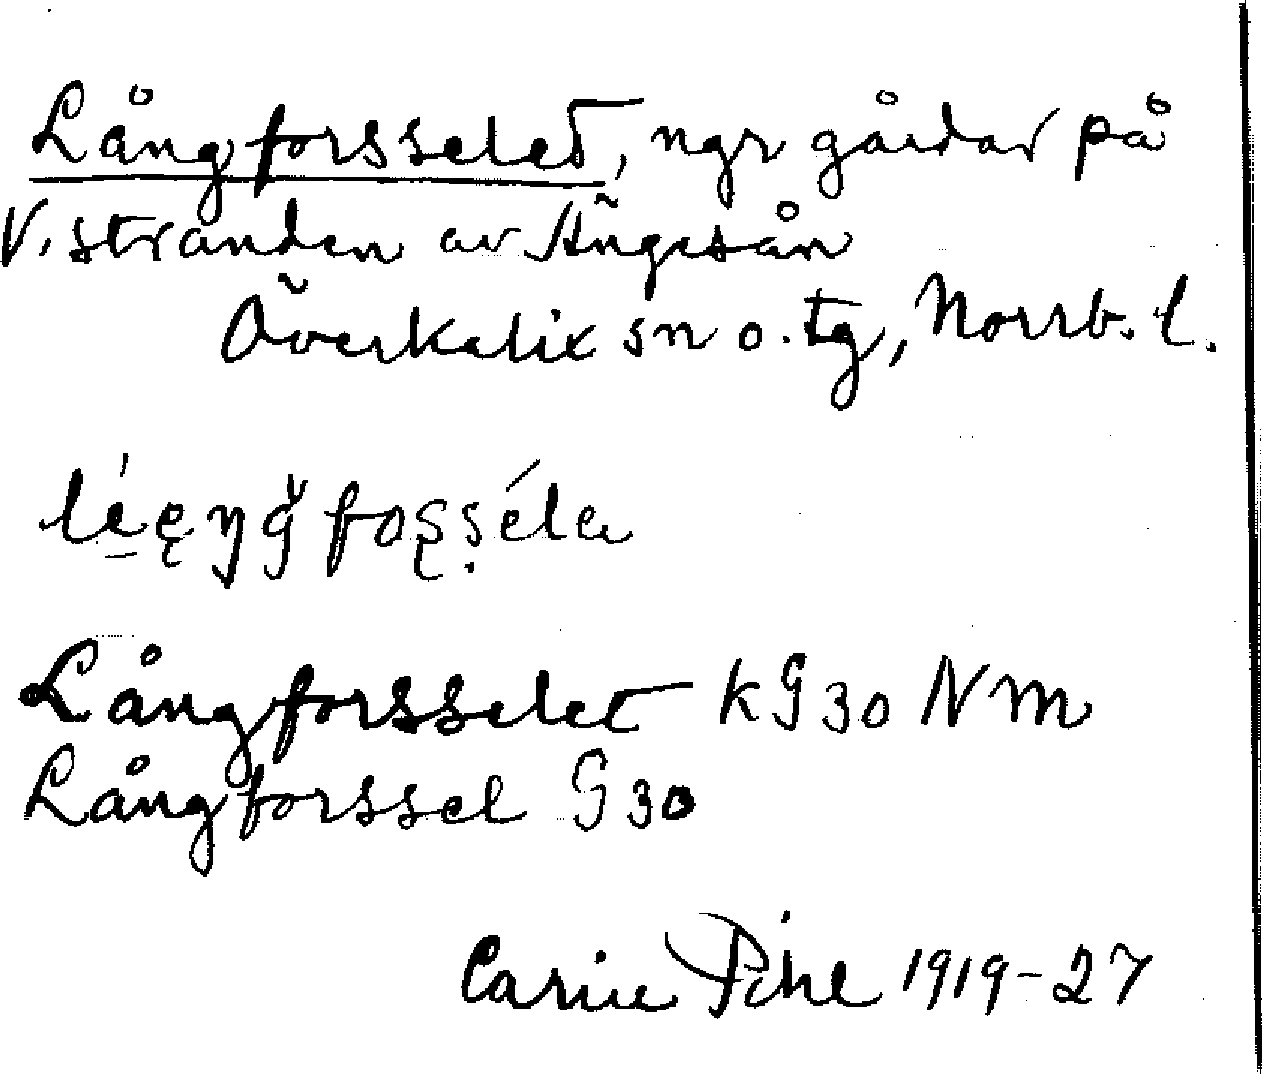 Långforsselet, ngr gårdar på
V. stranden av Ängesån
Överkalix sn o. tg, Norrb. l.
Långforsselet KG30 NM
Långforssel G30
Carin Pihl 1919-27